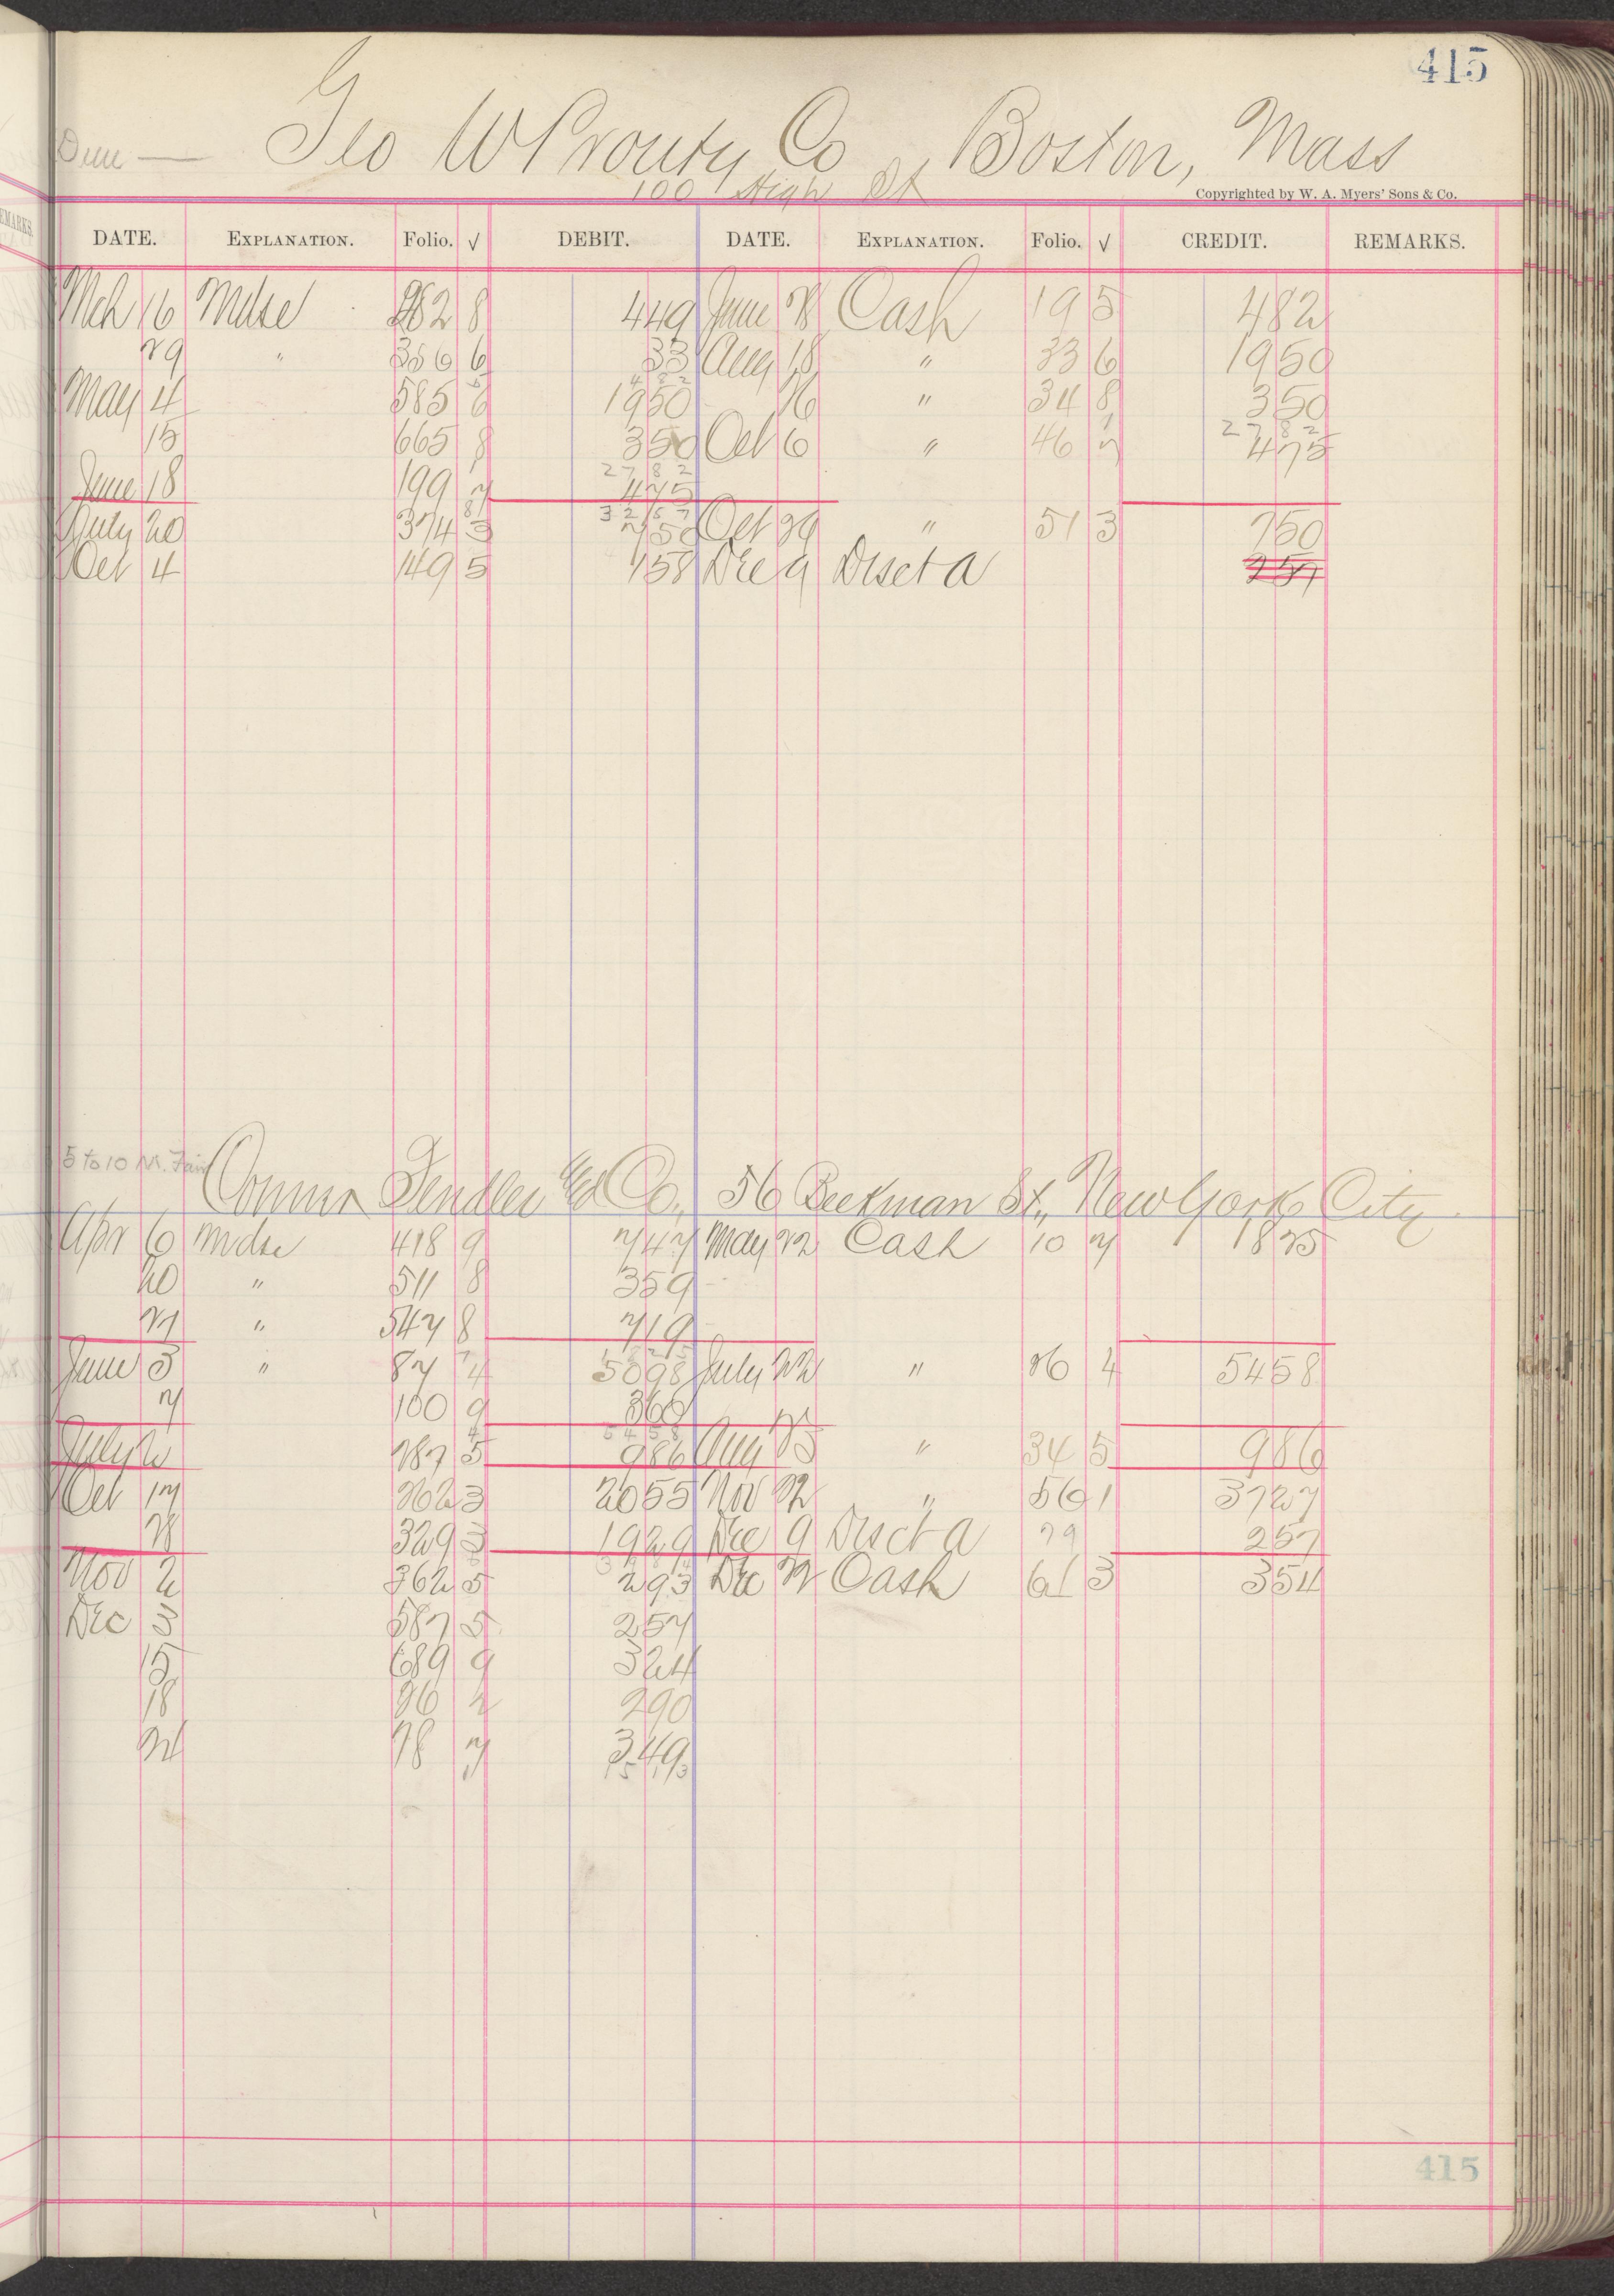 415
Geo W Prouty Co, Boston, Mass
100 High St
Copyrighted by W. A. Myers' Sons & Co.
DATE. EXPLANATION. Folio. √ DEBIT. DATE. EXPLANATION. Folio. √ CREDIT. REMARKS.
Mch 16 Mdse 282 8 449 June 28 Cash 19 5 482
29 " 356 6 33 Aug 18 " 33 6 1950
4 8 2
May 4 585 6 1950 26 " 34 8 350
2 7 8 2
15 665 8 350 Oct 6 " 46 7 475
2 7 8 2
June 18 199 7 475
3 2 5 7
July 20 374 3 750 Oct 29 " 51 3 750
Oct 4 149 5 758 Dec 9 Disct a 257
5 to 10 M. Fair
Conner Fendler Co., 56 Beekman St., New York City
Apr 6 Mdse 418 9 747 May 22 Cash 10 7 1825
20 " 511 8 359
27 " 547 8 719
June 3 " 87 4 5098 July 22 " 26 4 5458
7 100 9 360
5 4 5 8
July 2 287 5 986 Aug 25 " 34 5 986
Oct 17 262 3 2055 Nov 22 " 56 1 3727
28 329 3 1929 Dec 9 Disct a 79 257
Nov 2 362 5 293 Dec 22 Cash 61 3 354
Dec 3 587 5 257
15 689 9 324
18 26 2 290
24 78 7 349
415